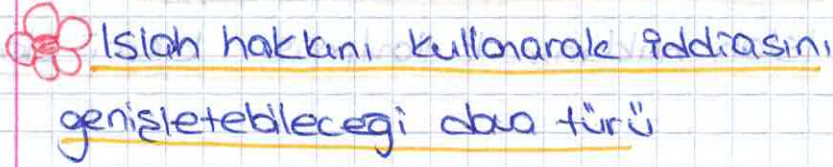 Islah hakkını kullanarak iddiasını
genişletebileceği dava türü